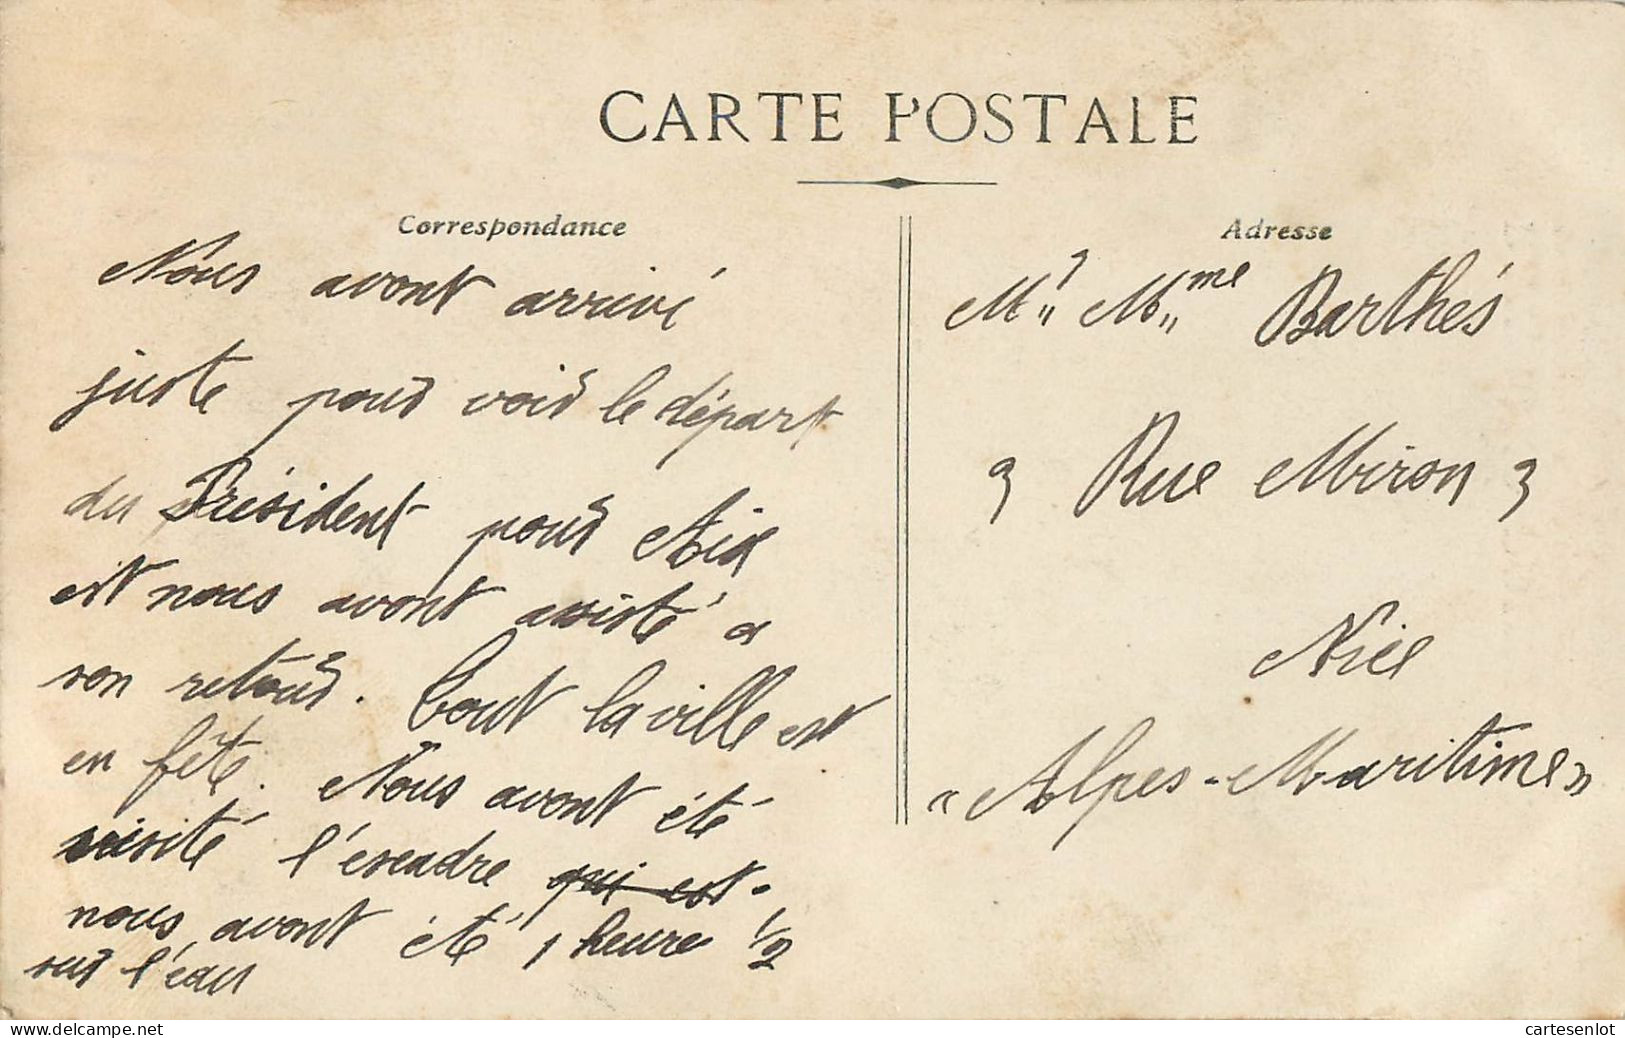 CARTE POSTALE
Correspondance
Nous avont arrivé
juste pour voir le départ
du Président pour Aix
est nous avont assisté a
son retour. Tout la ville est
en fête. Nous avont été
visité l'escadre qui est.
nous avont été 1 heure 1/2
sur l'eau
Adresse
Mr Mme Barthés
9 Rue Miron 9
Nice
"Alpes-Maritime"
www.delcampe.net
cartesenlot